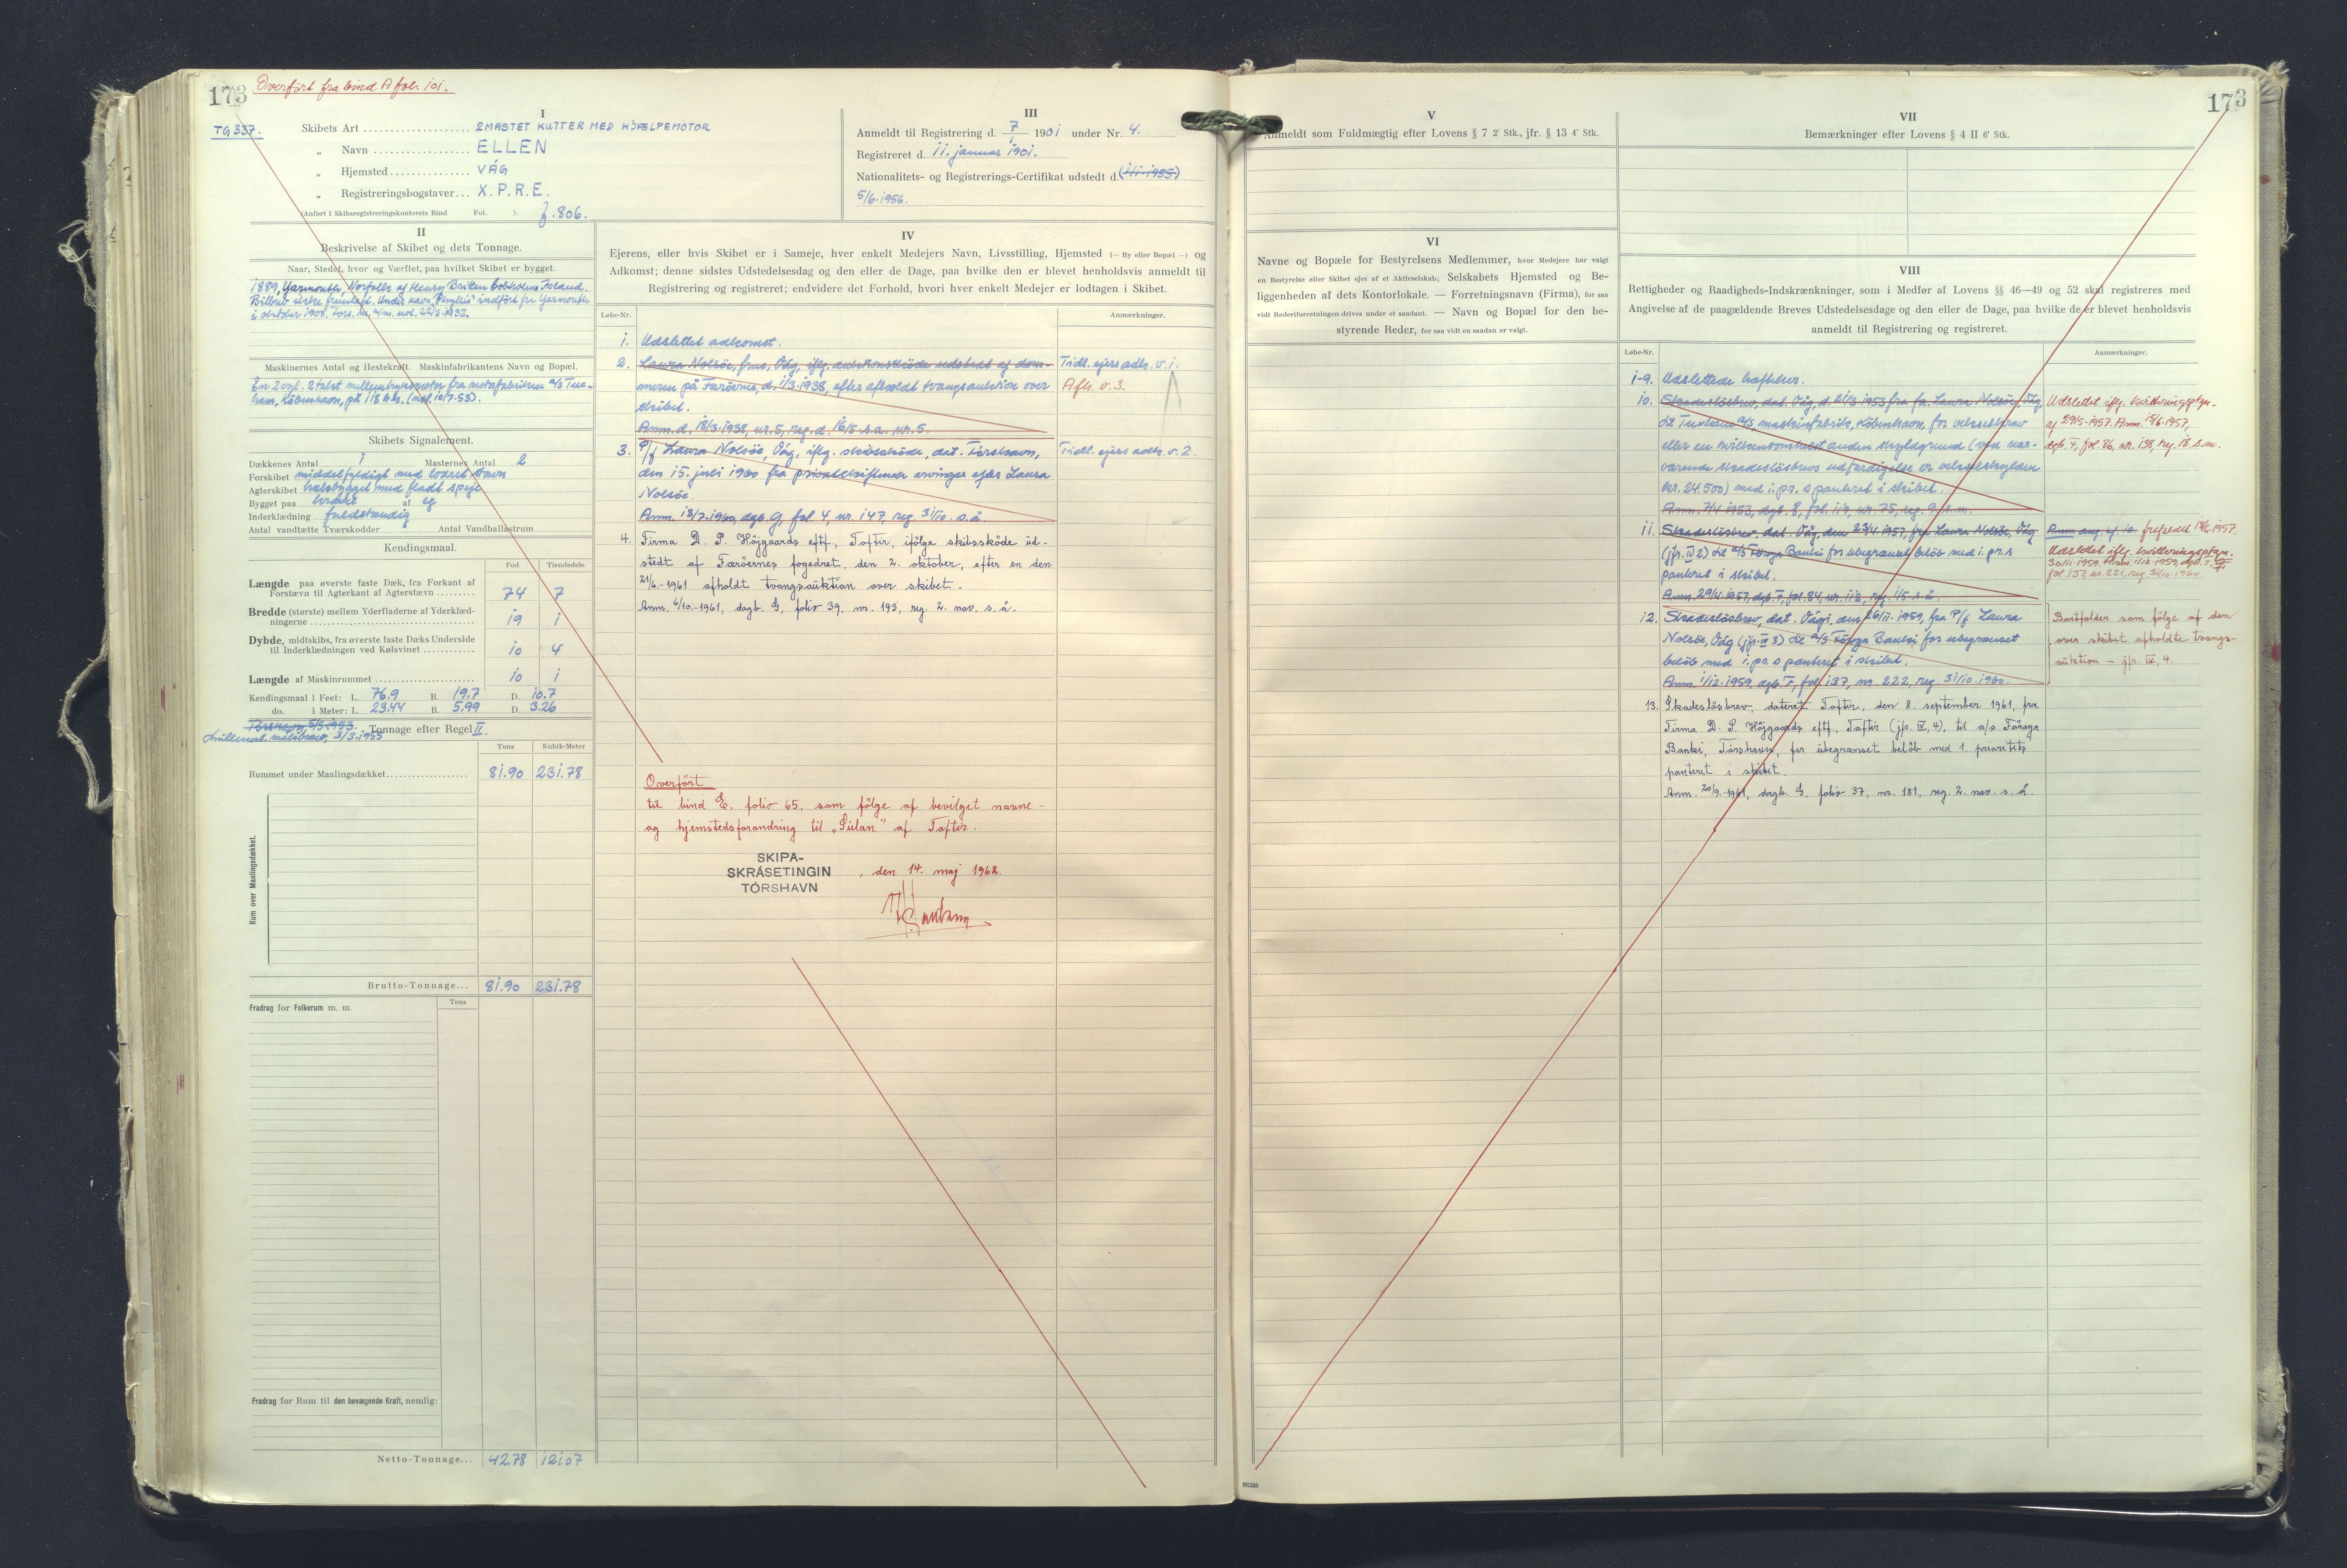 173
Overført fra bind A fol. 101.
TG 337.
I
Skibets Art 2MASTET KUTTER MED HJÆLPEMOTOR
„ Navn ELLEN
„ Hjemsted VÁG
„ Registreringsbogstaver X.P.R.E.
(Anført i Skibsregistreringskontorets Bind Fol. ). 806.
III
Anmeldt til Registrering d. 7/ 1901 under Nr. 4.
Registreret d. 11. januar 1901.
Nationalitets- og Registrerings-Certifikat udstedt d. (1/1-1955)
5/6.1956.
II
Beskrivelse af Skibet og dets Tonnage.
Naar, Stedet, hvor og Værftet, paa hvilket Skibet er bygget.
1889, Yarmouth, Norfolk af Henry Britten Cobholm Island.
Bilbrev ikke fremlagt. Under navn "Phyllis" indført fra Yarmouth
i oktober 1900.
Maskinernes Antal og Hestekraft. Maskinfabrikantens Navn og Bopæl.
En 2 cyl. 2 takts mellemtryksmotor fra motorfabriken A/S Tux-
ham, København, på 118 hk. (mol. 10/7.53).
Skibets Signalement.
Dækkenes Antal 1 Masternes Antal 2
Forskibet middelfyldigt med lodret stævn
Agterskibet halvbygget med fladt spejl
Bygget paa kravel af eg
Inderklædning fuldstændig
Antal vandtætte Tværskodder Antal Vandballastrum
Kendingsmaal.
Fod Tiendedele
Længde paa øverste faste Dæk, fra Forkant af
Forstævn til Agterkant af Agterstævn 74 7
Bredde (største) mellem Yderfladerne af Yderklæd-
ningerne 19 1
Dybde, midtskibs, fra øverste faste Dæks Underside
til Inderklædningen ved Kølsvinet 10 4
Længde af Maskinrummet 10 1
Kendingsmaal i Feet: L. 76.9 B. 19.7 D. 10.7
do. i Meter: L. 23.44 B. 5.99 D. 3.26
Tórshavn, 5/5.1953.
målebrev, 3/3.1955 Tonnage efter Regel II.
Tons Kubik-Meter
Rummet under Maalingsdækket 81.90 231.78
Rum over Maalingsdækket.
Brutto-Tonnage... 81.90 231.78
Fradrag for Folkerum m. m. Tons
Fradrag for Rum til den bevægende Kraft, nemlig:
Netto-Tonnage... 42.78 121.07
IV
Ejerens, eller hvis Skibet er i Sameje, hver enkelt Medejers Navn, Livsstilling, Hjemsted (— By eller Bopæl —) og
Adkomst; denne sidstes Udstedelsesdag og den eller de Dage, paa hvilke den er blevet henholdsvis anmeldt til
Registrering og registreret; endvidere det Forhold, hvori hver enkelt Medejer er lodtagen i Skibet.
Løbe-Nr. Anmærkninger.
1. Udslettet adkomst.
2. Laura Nolsöe, frue, Vág, iflg. auktionsskøde udstedt af dom- Tidl. ejers adk. v. 1.
meren på Færöerne, d. 1/3.1938, efter afholdt tvangsauktion over Afh. v. 3.
skibet.
Anm. d. 18/3.1938, nr. 5, reg. d. 16/5 s.a. nr. 5.
3. P/f Laura Nolsöe, Vág, iflg. skibsskøde, dat. Tórshavn, Tidl. ejers adk. v. 2.
den 15. juli 1960 fra privatskiftende arvinger efter Laura
Nolsöe.
Anm. 18/7.1960, dgb. G, fol. 4, nr. 147, reg. 31/10 s.å.
4. Firma D. P. Höjgaards eftf., Toftir, ifölge skibsskøde ud-
stedt af Færöernes fogedret, den 2. oktober, efter en den
21/6.-1961 afholdt tvangsauktion over skibet.
Anm. 6/10.-1961, dagb. G, folio 39, nr. 193, reg. 2. nov. s. å.
Overført
til bind E, folio 65, som fölge af bevilget navne-
og hjemstedsforandring til „Súlan" af Toftir.
SKIPA-
SKRÁSETINGIN
TÓRSHAVN
, den 14. maj 1962.
173
V
Anmeldt som Fuldmægtig efter Lovens § 7 2' Stk., jfr. § 13 4' Stk.
VI
Navne og Bopæle for Bestyrelsens Medlemmer, hvor Medejere har valgt
en Bestyrelse eller Skibet ejes af et Aktieselskab; Selskabets Hjemsted og Be-
liggenheden af dets Kontorlokale. — Forretningsnavn (Firma), for saa
vidt Rederiforretningen drives under et saadant. — Navn og Bopæl for den be-
styrende Reder, for saa vidt en saadan er valgt.
VII
Bemærkninger efter Lovens § 4 II 6' Stk.
VIII
Rettigheder og Raadigheds-Indskrænkninger, som i Medfør af Lovens §§ 46—49 og 52 skal registreres med
Angivelse af de paagældende Breves Udstedelsesdag og den eller de Dage, paa hvilke de er blevet henholdsvis
anmeldt til Registrering og registreret.
Løbe-Nr. Anmærkninger.
1-9. Udslettede hæftelser.
10. Skadeslösbrev, dat. Vág, d. 21/3.1953 fra fr. Laura Nolsöe, Vág, Udslettet iflg. kvitteringspåtgn.
til Tuxham A/S maskinfabrik, København, for vekselbrev af 29/5-1957. Anm. 15/6.1957,
eller en hvilkensomhelst anden skyldgrund (ved nær- dgb. F, fol. 86, nr. 138, reg. 18. s.m.
værende skadeslösbrevs udfærdigelse er vekselskylden
kr. 24.500) med 1. pr.s panteret i skibet.
Anm. 7/4 1953, dgb. E, fol. 119, nr. 75, reg. 9. s.m.
11. Skadeslösbrev, dat. Vág, den 23/4 1957, fra Laura Nolsöe, Vág
(jfr. IV 2) til A/S Føroya Banki for ubegrænset beløb med 1. pr.s Udslettet iflg. kvitteringspåtgn.
panteret i skibet. 30/11-1959. Anm. 1/12-1959, dgb. F,
Anm. 29/4 1957, dgb. F, fol. 84, nr. 112, reg. 1/5 s.å. fol. 137, nr. 221, reg. 31/10-1960.
12. Skadeslösbrev, dat. Vági, den 26/11. 1959, fra P/f Laura Bortfalder som fölge af den
Nolsöe, Vág (jfr. IV 3) til A/S Føroya Banki for ubegrænset over skibet afholdte tvangs-
beløb med 1. pr. s panteret i skibet. auktion — jfr. IV, 4.
Anm. 1/12-1959, dgb. F, fol. 137, nr. 222, reg. 31/10. 1960.
13. Skadeslösbrev, dateret Toftir, den 8. september 1961, fra
Firma D. P. Höjgaards eftf., Toftir (jfr. IV, 4), til a/s Föroya
Banki, Tórshavn, for ubegrænset beløb med 1. prioritets
panteret i skibet.
Anm. 20/9.-1961, dagb. G, folio 37, nr. 181, reg. 2. nov. s. å.